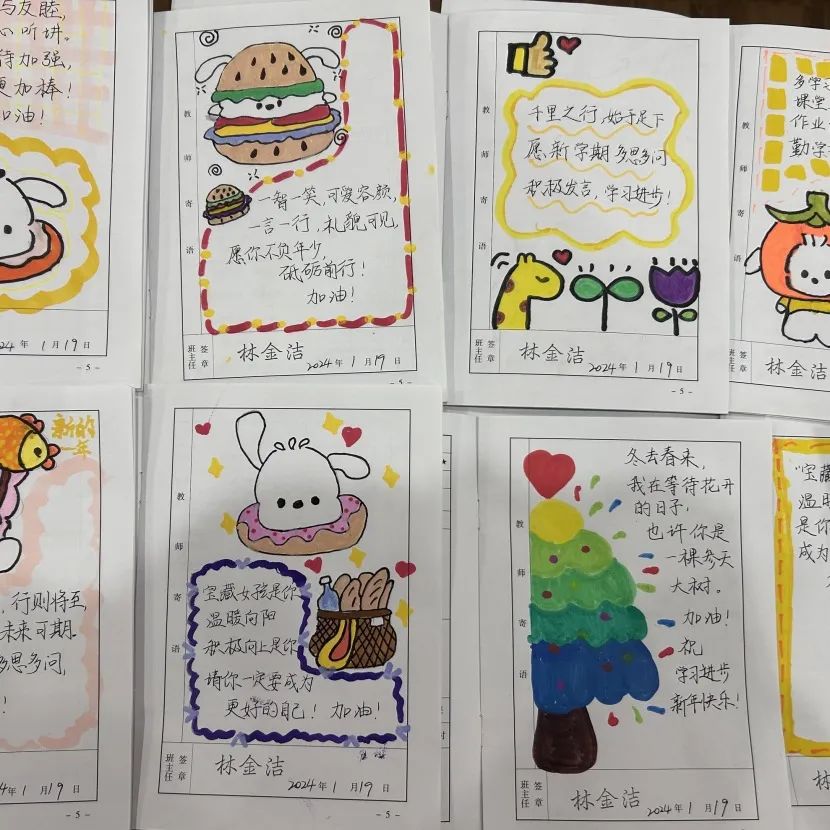 与友睦,
心听讲。
待加强,
更加棒!
加油!
2024年 1月19日
- 5 -
教师寄语
一智一笑,可爱容颜,
一言一行,礼貌可见,
愿你不负年少,
砥砺前行!
加油!
班主任
签章
林金洁
2024年 1月19日
- 5 -
教师寄语
千里之行,始于足下
愿新学期多思多问
积极发言,学习进步!
班主任
签章
林金洁
2024年 1月19日
- 5 -
教师寄语
多学
课堂
作业
勤学
班主任
签章
林金洁
新的
一年
行则将至,
未来可期。
多思多问,
!
年 1月19日
- 5 -
教师寄语
宝藏女孩是你
温暖向阳
积极向上是你
请你一定要成为
更好的自己! 加油!
班主任
签章
林金洁
2024年 1月19日
- 5 -
教师寄语
冬去春来,
我在等待花开
的日子,
也许你是
一棵参天
大树。
加油!
祝
学习进步
新年快乐!
班主任
签章
林金洁
2024年 1月19日
"宝藏
温暖
是你
成为
林